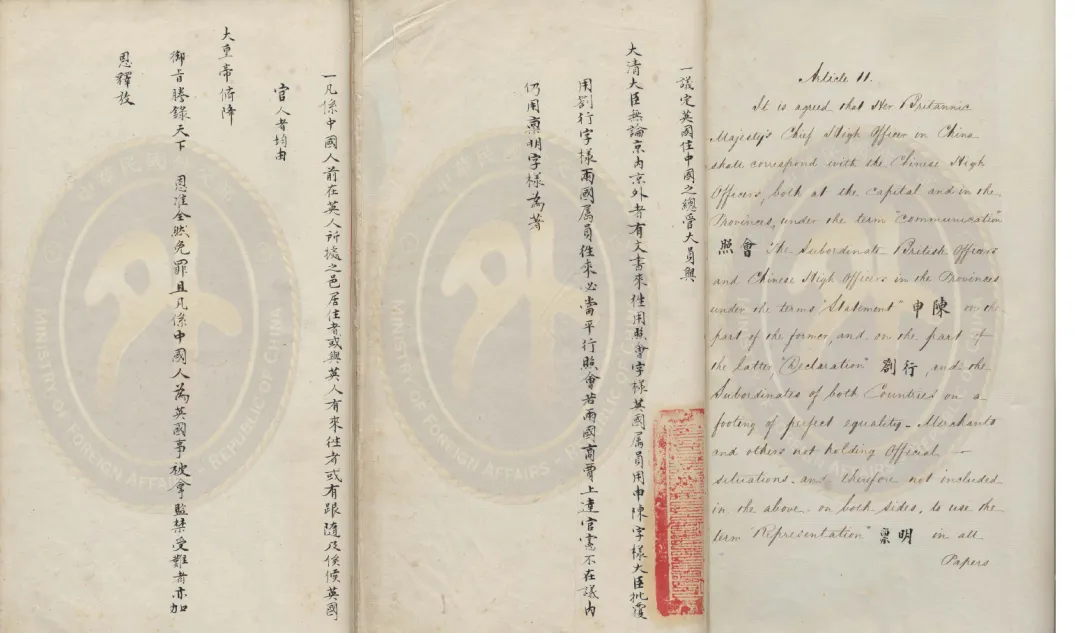 Article 11.
It is agreed that Her Britannic
Majesty's Chief High Officer in China
shall correspond with the Chinese High
Officers, both at the capital and in the
Provinces, under the term "Communication"
照會 The Subordinate British Officers
and Chinese High Officers in the Provinces
under the terms "Statement" 申陳 on the
part of the former, and on the part of
the latter, "Declaration" 劄行, and the
Subordinates of both Countries on a
footing of perfect equality – Merchants
and others not holding Official —
situations, and therefore not included
in the above, on both sides, to use the
term "Representation" 稟明 in all
Papers
一議定英國住中國之總管大員與
大清大臣無論京內京外者有文書來往用照會字樣英國屬員用申陳字樣大臣批覆
用劄行字樣兩國屬員往來必當平行照會若兩國商賈上達官憲不在議內
仍用稟明字樣為著
一凡係中國人前在英人所據之邑居住者或與英人有來往者或有跟隨及俟候英國
官人者均由
大皇帝俯降
御旨謄錄天下 恩准全然免罪且凡係中國人為英國事被拿監禁受難者亦加
恩釋放
MINISTRY OF FOREIGN AFFAIRS - REPUBLIC OF CHINA
MINISTRY OF FOREIGN AFFAIRS - REPUBLIC OF CHINA